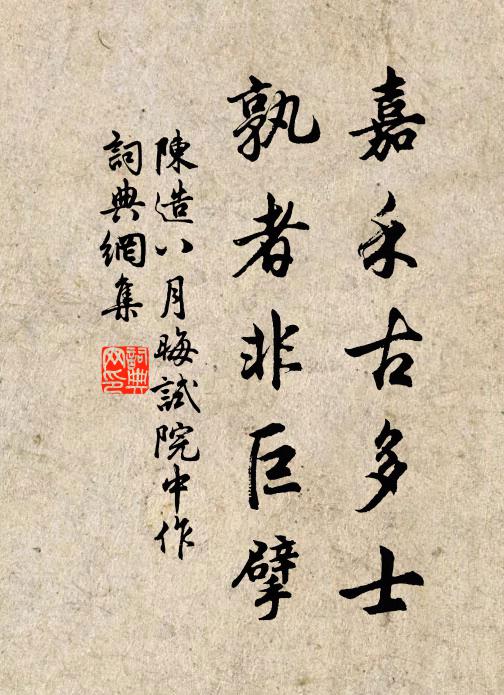 嘉禾古多士
孰者非巨擘
陳造八月晦試院中作
詞典網集
詞典网印